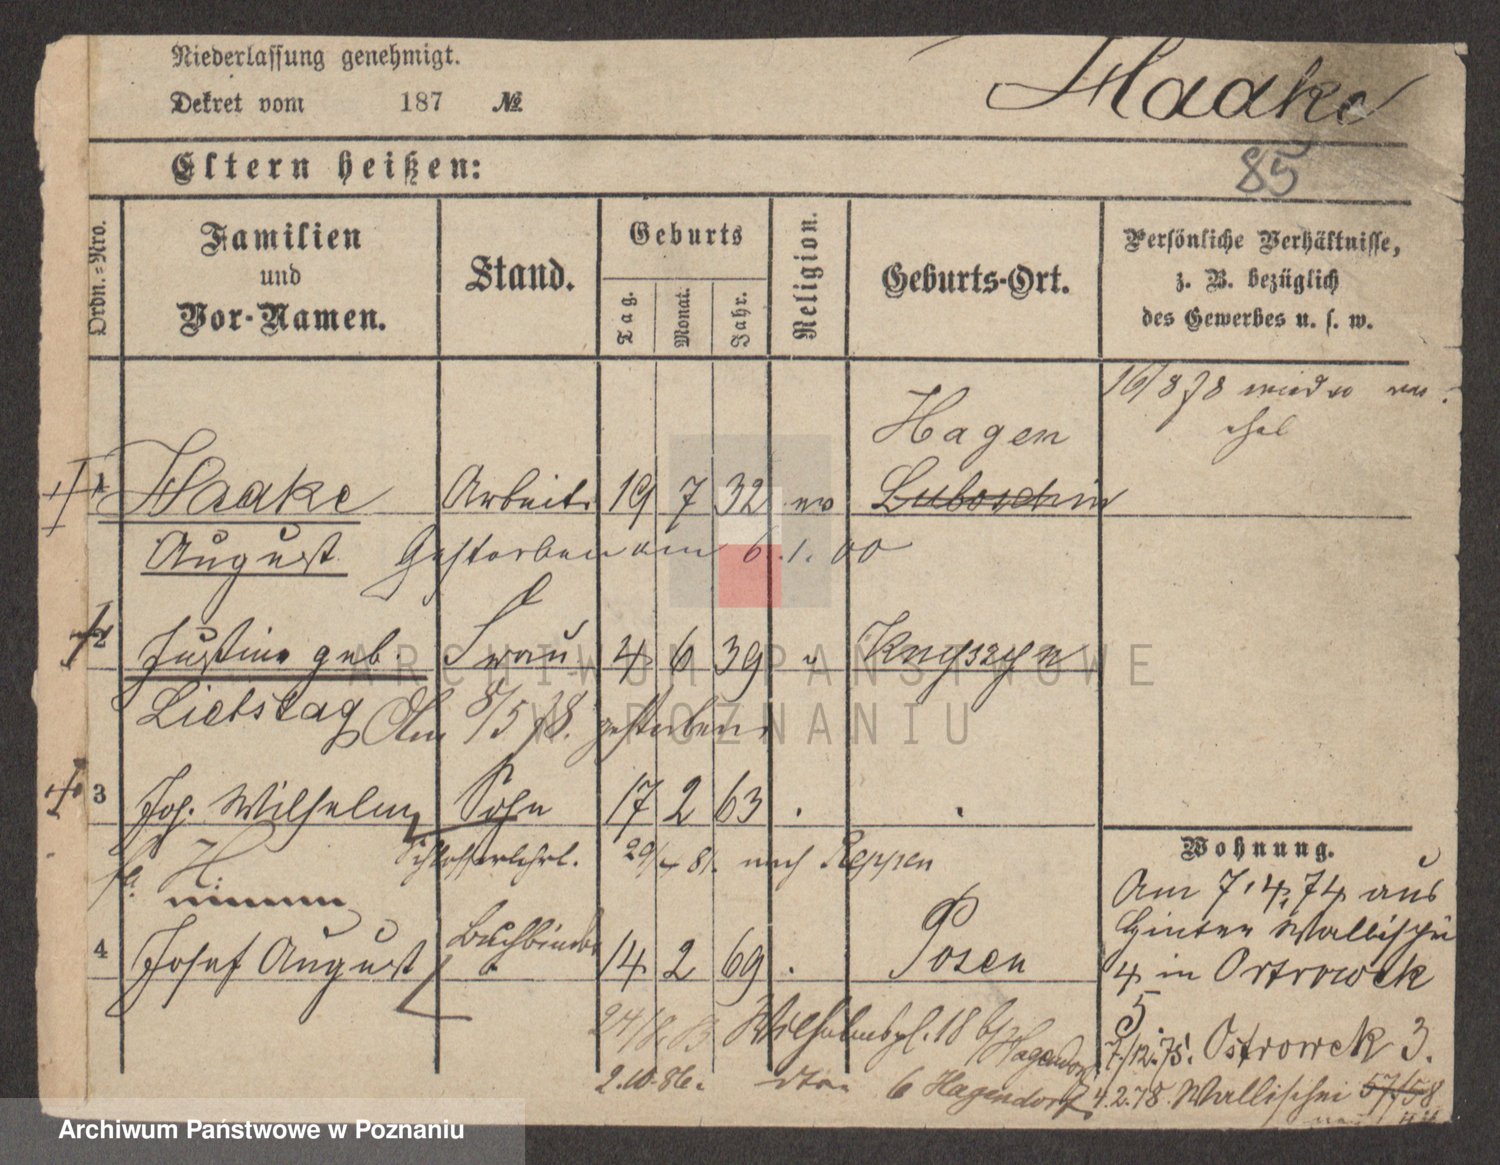 Niederlassung genehmigt.
Dekret vom 187 №
Haake
85
Eltern heißen:
Ordn.=Nro.
Familien
und
Vor-Namen.
Stand.
Geburts
Tag.
Monat.
Jahr.
Religion.
Geburts-Ort.
Persönliche Verhältnisse,
z. B. bezüglich
des Gewerbes u. s. w.
16/8 78
Hagen
1 Haake Arbeit. 19 7 32 ev Luboschin
August Gestorben am 6.1.00
2 Justine geb Frau 4 6 39 Knyszyn
Liebstag Am 8/5 78. gestorben
3 Joh. Wilhelm Sohn 17 2 63
Schlosserlehrl. nach Reppen
Wohnung.
Am 7.4.74 aus
Hinter Wallischei
4 in Ostrowek
5.
4 Josef August Buchbinder 14 2 69 Posen
Wilhelmspl. 18 b/ Hagendorf
7/12.75. Ostrowek 3.
2.10.86. 6 Hagendorf
4.2.78. Wallischei 57/58
ARCHIWUM PAŃSTWOWE
W POZNANIU
Archiwum Państwowe w Poznaniu